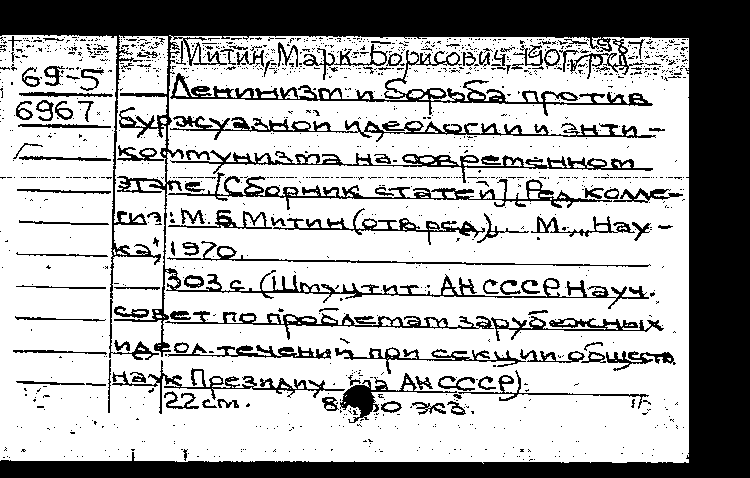 Митин, Марк Борисович, 1901-1987
69-5
Ленинизм и борьба против
6967
буржуазной идеологии и анти-
коммунизма на современном
этапе. [Сборник статей]. [Ред. колле-
гия: М. Б. Митин (отв. ред.)], М., „Нау-
ка“, 1970.
303 с. (Шмуцтит.: АН СССР. Науч.
совет по проблемам зарубежных
идеол. течений при секции обществ.
наук Президиума АН СССР)
22 см. экз.